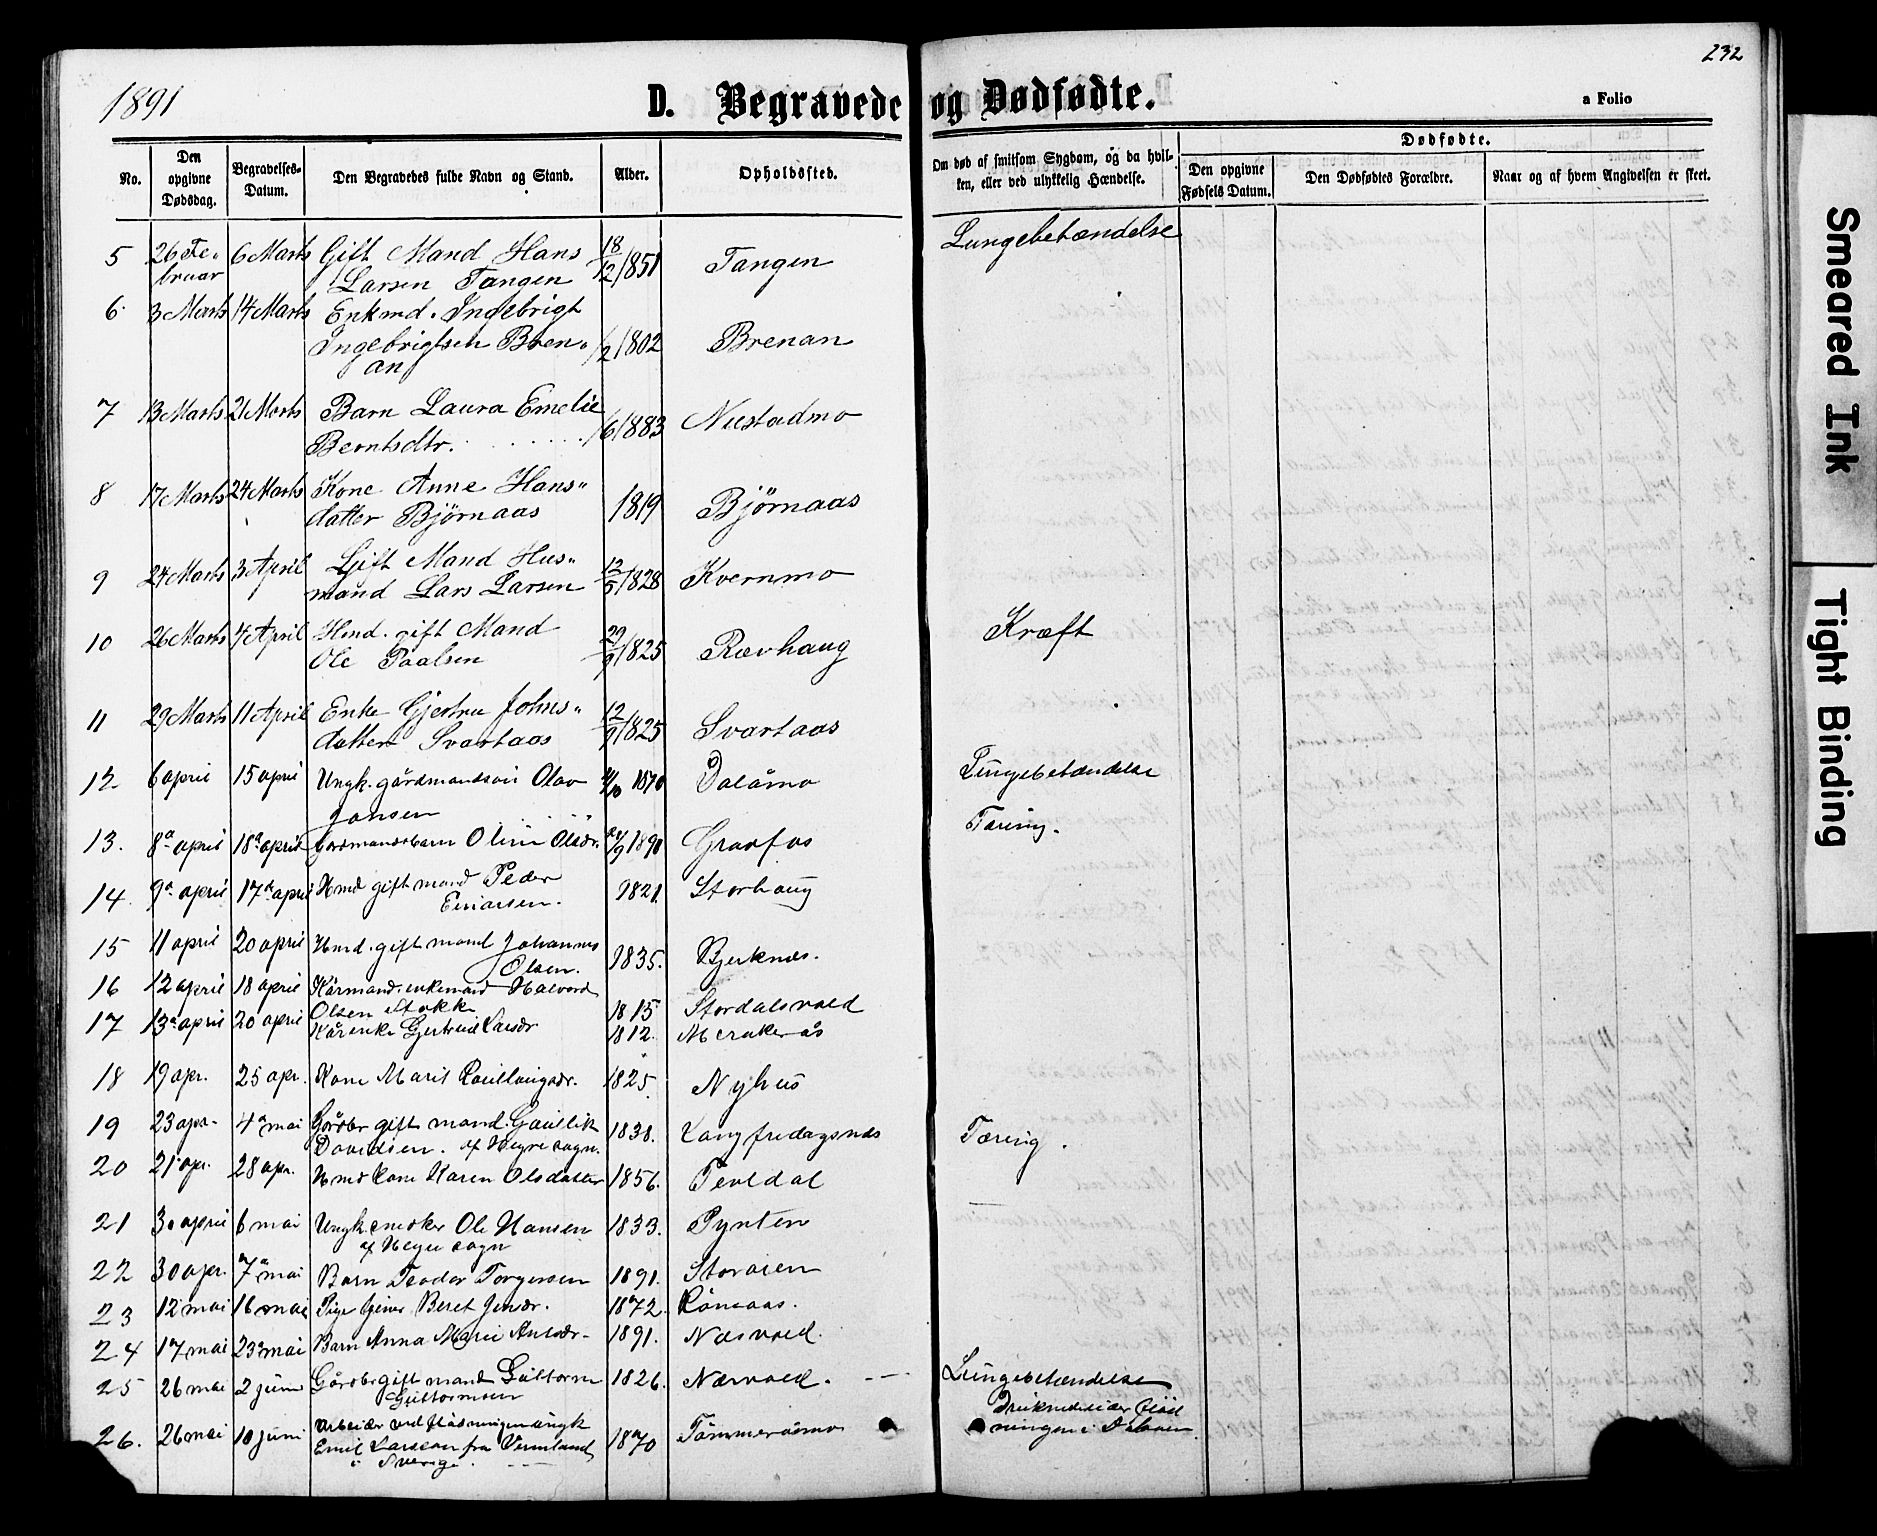 1891
D. Begravede og Dødfødte.
232
a Folio
No.
Den opgivne Dødsdag.
Begravelses-Datum.
Den Begravedes fulde Navn og Stand.
Alder.
Opholdssted.
Om død af smitsom Sygdom, og da hvil-
ken, eller ved ulykkelig Hændelse.
Dødfødte.
Den opgivne Fødsels Datum.
Den Dødfødtes Forældre.
Naar og af hvem Angivelsen er skeet.
5 26 Fe- 6 Marts Gift Mand Hans 18/12 1851 Tangen Lungebetændelse
bruar Larsen Tangen
6 3 Marts 14 Marts Enkmd. Ingebrigt
Ingebrigtsen Bren- 1/2 1802 Brenan
an
7 13 Marts 21 Marts Barn Laura Emelie
Berntsdtr. 1/6 1883 Nustadmo
8 17 Marts 24 Marts Kone Anne Hans-
datter Björnaas 1819 Björnaas
9 24 Marts 3 April Gift Mand Hus-
mand Lars Larsen 12/5 1828 Kvernmo
10 26 Marts 4 April Hmd. gift Mand
Ole Paalsen 29/9 1825 Rævhaug Kræft
11 29 Marts 11 April Enke Gjertru Johns-
datter Svartaas 12/9 1825 Svartaas
12 6 april 15 april Ungk. gårdmandssön Olav 1870 Dalåmo Lungebetændelse
Jonsen
13. 8de april 18de april Gardmandsbarn Oline Olsdr. 1890 Gravfos Tæring.
14. 9de april 17de april Hmd gift mand Peder 1821. Storhaug
Einarsen.
15 11 april 20 april Hmd. gift mand Johannes
Olsen. 1835. Bjerknes.
16 12 april 18 april Kårmand enkemand Halvord
Olsen Stokke 1815 Stordalsvold
17 13de april 20 april Kårenke Gjertrud Larsdr 1812. Meraker ås
18 19 apr. 25 apr. Kone Marit 1825. Nyhus
19 23 apr. 4de mai Gårdbr gift mand. Gaullik 1838. Langfredagsnæs Tæring.
Davidsen. af Hegre sogn.
20 21 apr. 28 apr. Hmd kone Karen Olsdatter 1856. Tevldal
21 30 april 6 mai Ungk. snedker Ole Hansen 1833. Pynten
af Hegre sogn
22 30 apr. 7de mai Barn Teodor Torgersen 1891. Stordien
23 12 mai 16 mai Pige Beret Jensdr. 1872. Rönsaas.
24 17 mai 23 mai Barn Anna Marie 1891. Næsvold.
25 26 mai 2 juni Gårdbr gift mand Guttorm 1826. Nærvold. Lungebetændelse
Guttormsen
26. 26 mai 10 juni Arbeider ved flådningen ungk Druknede under flåd
Emil Larsson fra Vermland 1870 Tömmeråsmo ningen i Dalåen.
i Sverige.
Smeared Ink
Tight Binding